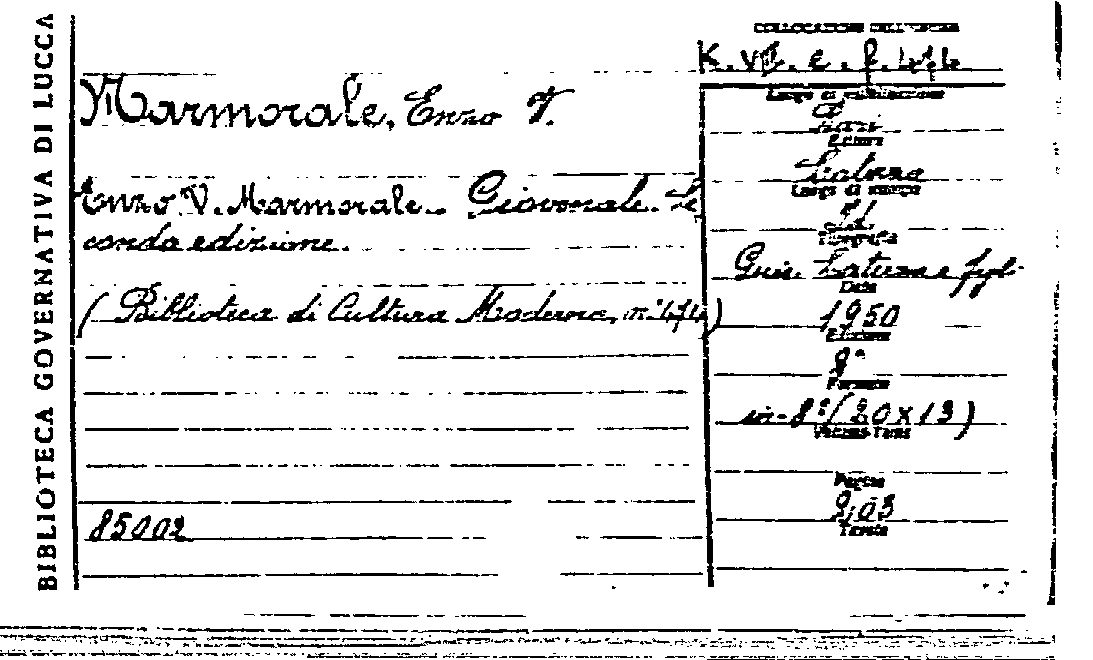 BIBLIOTECA GOVERNATIVA DI LUCCA
Marmorale, Enzo V.
Enzo V. Marmorale. Giovenale. Se
conda edizione.
( Biblioteca di Cultura Moderna, n° 474)
85002
COLLOCAZIONE DELL'OPERA
K. VII. e. f. 474
Luogo di pubblicazione
Bari
Editore
Laterza
Luogo di stampa
Id.
Tipografia
Gius. Laterza e figli
Data
1950
Edizione
2ª
Formato
in-8°(20x13)
Volume-Tomo
Pagine
203
Tavole